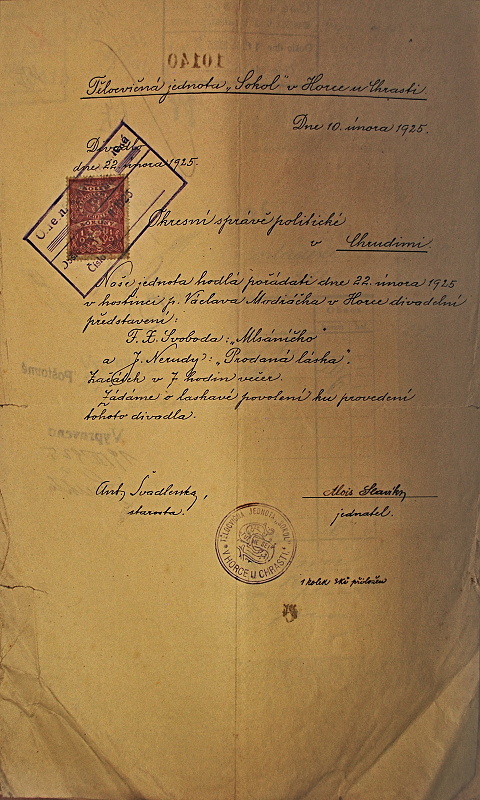 10140
Tělocvičná jednota „Sokol" v Horce u Chrasti.
Dne 10. února 1925.
Divadlo
dne 22. února 1925.
Okresní správě politické
v Chrudimi.
Naše jednota hodlá pořádati dne 22. února 1925
v hostinci p. Václava Modráčka v Horce divadelní
představení:
F. X. Svoboda: „Mlsáníčko"
a J. Nerudy: „Prodaná láska".
Začátek v 7 hodin večer.
Žádáme o laskavé povolení ku provedení
tohoto divadla.
Ant. Švadlenka,
starosta.
Alois Slavík
jednatel.
TĚLOCVIČNÁ JEDNOTA „SOKOL"
V HORCE U CHRASTI.
1 kolek 3Kč přiložen
Poštovné
Vypraveno